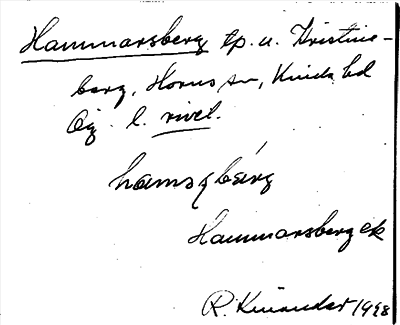 Hammarsberg tp. u. Kristine-
berg, Horns sn, Kinda hd
Ög. l. rivet.
hamsbärg
Hammarsberg ek
R. Kinander 1928